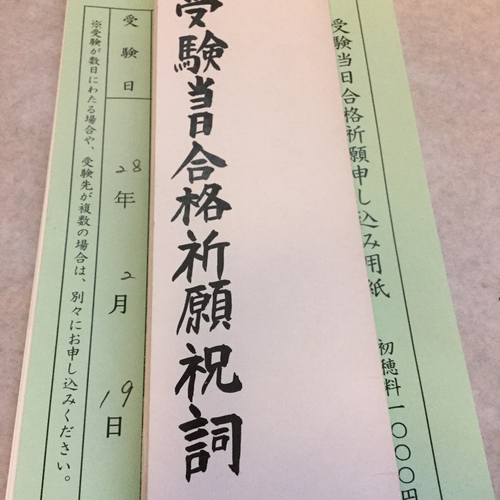 受験当日合格祈願申し込み用紙
初穂料一〇〇〇円
受験当日合格祈願祝詞
受験日
28年2月19日
※受験が数日にわたる場合や、受験先が複数の場合は、別々にお申し込みください。